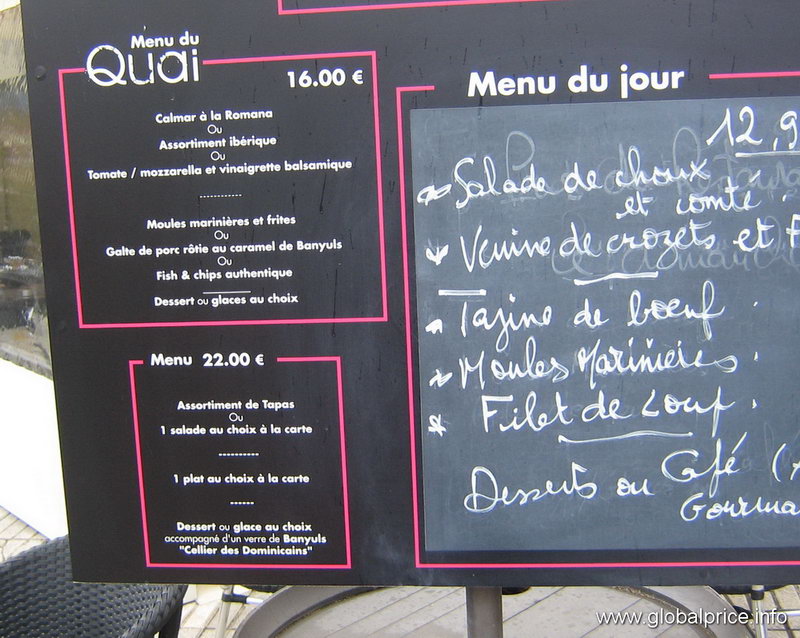 Menu du
Quai
16.00 €
Calmar à la Romana
Ou
Assortiment ibérique
Ou
Tomate / mozzarella et vinaigrette balsamique
------------
Moules marinières et frites
Ou
Galte de porc rôtie au caramel de Banyuls
Ou
Fish & chips authentique
Dessert ou glaces au choix
Menu 22.00 €
Assortiment de Tapas
Ou
1 salade au choix à la carte
----------
1 plat au choix à la carte
------
Dessert ou glace au choix
accompagné d'un verre de Banyuls
"Cellier des Dominicains"
Menu du jour
12,9
Salade de choux
et comté.
de crozets et
Tajine de bœuf.
Moules Marinières.
Filet de Loup.
Desserts ou Café
Gourma
www.globalprice.info